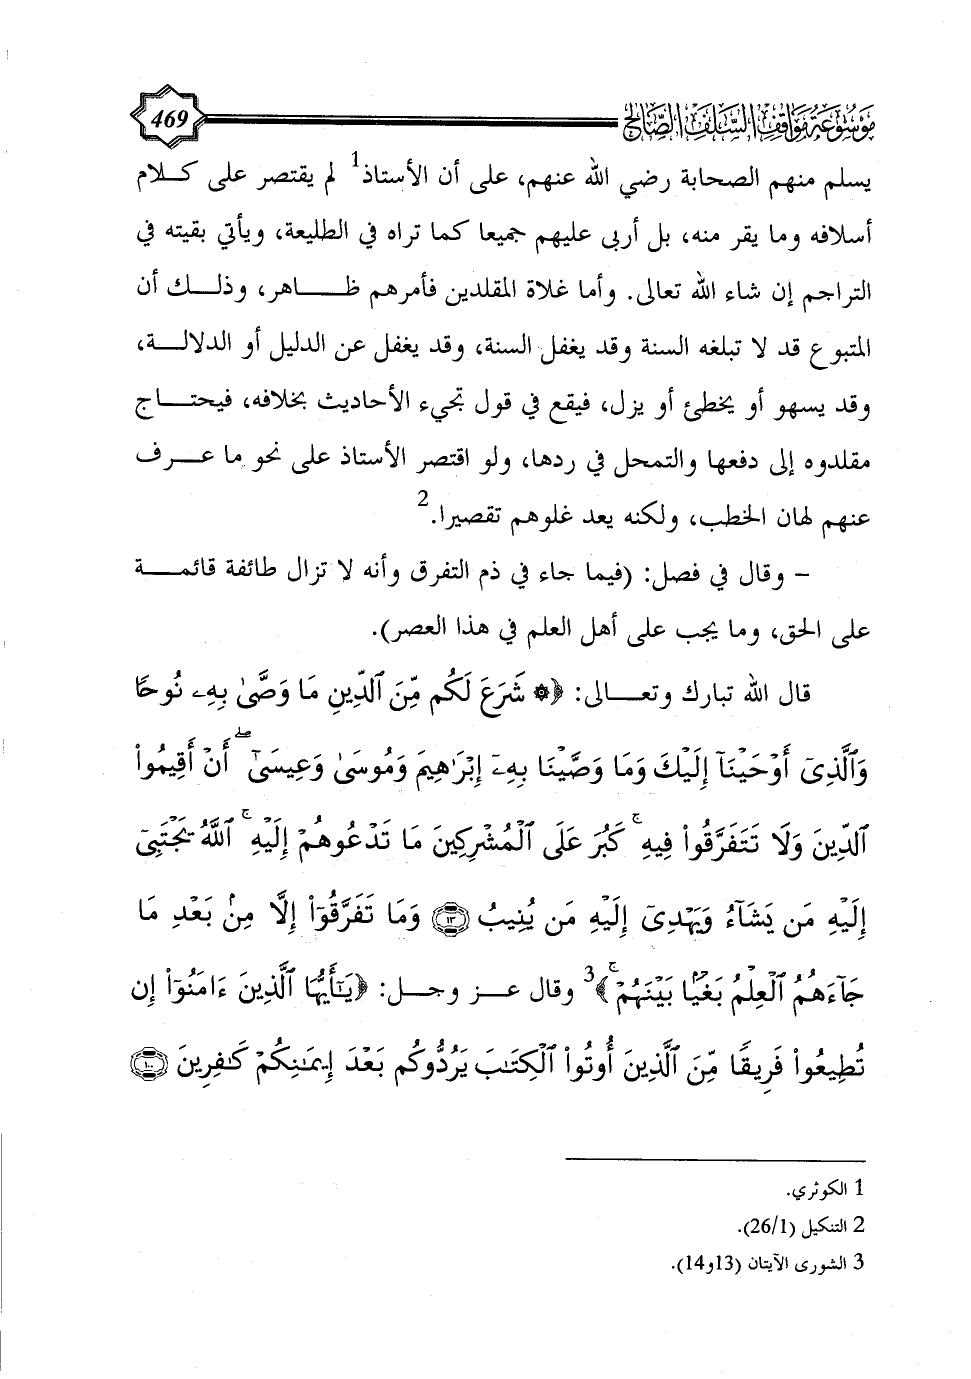 موسوعة مواقف السلف الصالح
469
يسلم منهم الصحابة رضي الله عنهم، على أن الأستاذ1 لم يقتصر على كلام
أسلافه وما يقر منه، بل أربى عليهم جميعا كما تراه في الطليعة، ويأتي بقيته في
التراجم إن شاء الله تعالى. وأما غلاة المقلدين فأمرهم ظاهر، وذلك أن
المتبوع قد لا تبلغه السنة وقد يغفل السنة، وقد يغفل عن الدليل أو الدلالة،
وقد يسهو أو يخطئ أو يزل، فيقع في قول تجيء الأحاديث بخلافه، فيحتاج
مقلدوه إلى دفعها والتمحل في ردها، ولو اقتصر الأستاذ على نحو ما عرف
عنهم لهان الخطب، ولكنه يعد غلوهم تقصيرا.2
- وقال في فصل: (فيما جاء في ذم التفرق وأنه لا تزال طائفة قائمة
على الحق، وما يجب على أهل العلم في هذا العصر).
قال الله تبارك وتعالى: ﴿۞ شَرَعَ لَكُم مِّنَ ٱلدِّينِ مَا وَصَّىٰ بِهِۦ نُوحًا
وَٱلَّذِىٓ أَوْحَيْنَآ إِلَيْكَ وَمَا وَصَّيْنَا بِهِۦٓ إِبْرَٰهِيمَ وَمُوسَىٰ وَعِيسَىٰٓ ۖ أَنْ أَقِيمُوا۟
ٱلدِّينَ وَلَا تَتَفَرَّقُوا۟ فِيهِ ۚ كَبُرَ عَلَى ٱلْمُشْرِكِينَ مَا تَدْعُوهُمْ إِلَيْهِ ۚ ٱللَّهُ يَجْتَبِىٓ
إِلَيْهِ مَن يَشَآءُ وَيَهْدِىٓ إِلَيْهِ مَن يُنِيبُ ١٣ وَمَا تَفَرَّقُوٓا۟ إِلَّا مِنۢ بَعْدِ مَا
جَآءَهُمُ ٱلْعِلْمُ بَغْيًۢا بَيْنَهُمْ ۚ﴾3 وقال عز وجل: ﴿يَٰٓأَيُّهَا ٱلَّذِينَ ءَامَنُوٓا۟ إِن
تُطِيعُوا۟ فَرِيقًا مِّنَ ٱلَّذِينَ أُوتُوا۟ ٱلْكِتَٰبَ يَرُدُّوكُم بَعْدَ إِيمَٰنِكُمْ كَٰفِرِينَ ١٠٠
1 الكوثري.
2 التنكيل (26/1).
3 الشورى الآيتان (13و14).